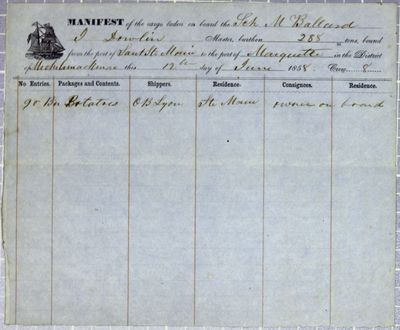 MANIFEST of the cargo taken on board the Sch M Ballard
J Dowlin Master, burthen 288 tons, bound
from the port of Saut Ste Marie to the port of Marquette in the District
of Michilimackinac this 12th day of June 1858. Crew 8
No Entries. Packages and Contents. Shippers. Residence. Consignees. Residence.
90 Bu Potatoes O B Lyon Ste Marie owner on board